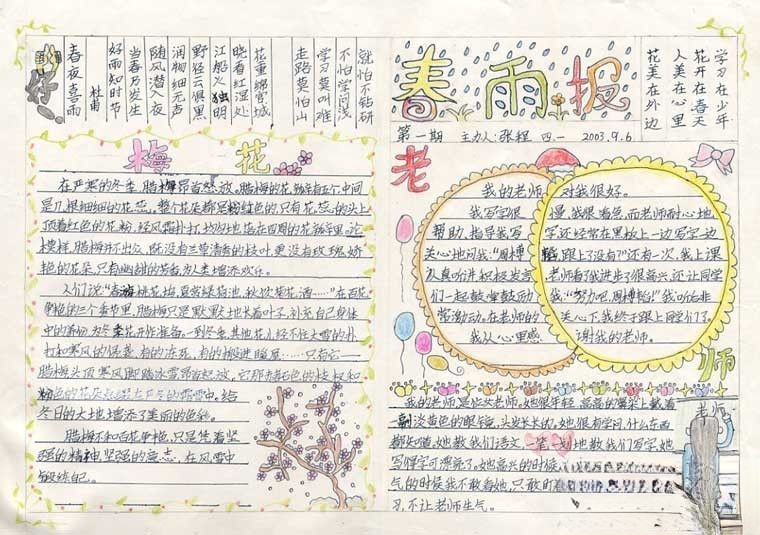 春夜喜雨
杜甫
好雨知时节
当春乃发生
随风潜入夜
润物细无声
野径云俱黑
江船火独明
晓看红湿处
花重锦官城
走路莫怕山
学习莫叫难
不怕学问浅
就怕不钻研
春雨报
第一期 主办人:张程 四一 2003.9.6
学习在少年
花开在春天
人美在心里
花美在外边
梅花
在严寒的冬季,腊梅昂首怒放。腊梅的花
是几根细细的花蕊。整个花朵都是粉红色的,只有花蕊的头上
顶着红色的花粉,经风霜扑打
模样,腊梅并不出众,既没有兰莹清秀的枝叶,更没有玫瑰娇
艳的花朵,只有幽甜的芳香为人类增添欢乐。
人们说“春
色的三个季节里,腊梅只是默默地长着叶子,补充自己身体
中的养份,为冬季花开作准备。一到冬季,其他花儿经不住大雪的扑
打和寒风的侵袭,有的冻死,有的搬进暖屋……只有它——
腊梅头顶寒风脚踏冰雪昂首怒放。它那赤红色的枝权和
粉色的花朵
冬日的大地增添了美丽的色彩。
腊梅不和百花争艳,只是凭着坚
强的精神,坚强的意志,在风雪中
锻练自己。
老师
我的老师对我很好。
我写字很慢,我很着急,而老师耐心地
帮助,指导我写字还经常在黑板上一边写字一边
关心地问我:“周博韬,跟上了没有?”还有一次,我上课
认真听讲积极发言老师看我进步了很高兴,还让同学
们一起鼓掌鼓动我:“努力吧,周博韬!”我听后非
常激动,在老师的关心下,我终于跟上同学们了。
我从心里感谢我的老师。
我的老师,是位女老师。她很年轻,高高的鼻梁上戴着
一副淡黄色的眼镜,头发长长的。她很有学问,什么东西
都知道,她教我们语文,一笔一划地教我们写字,她
写得字可漂亮了。她高兴的时候
气的时候我不敢看她,只敢盯
习,不让老师生气。
老师